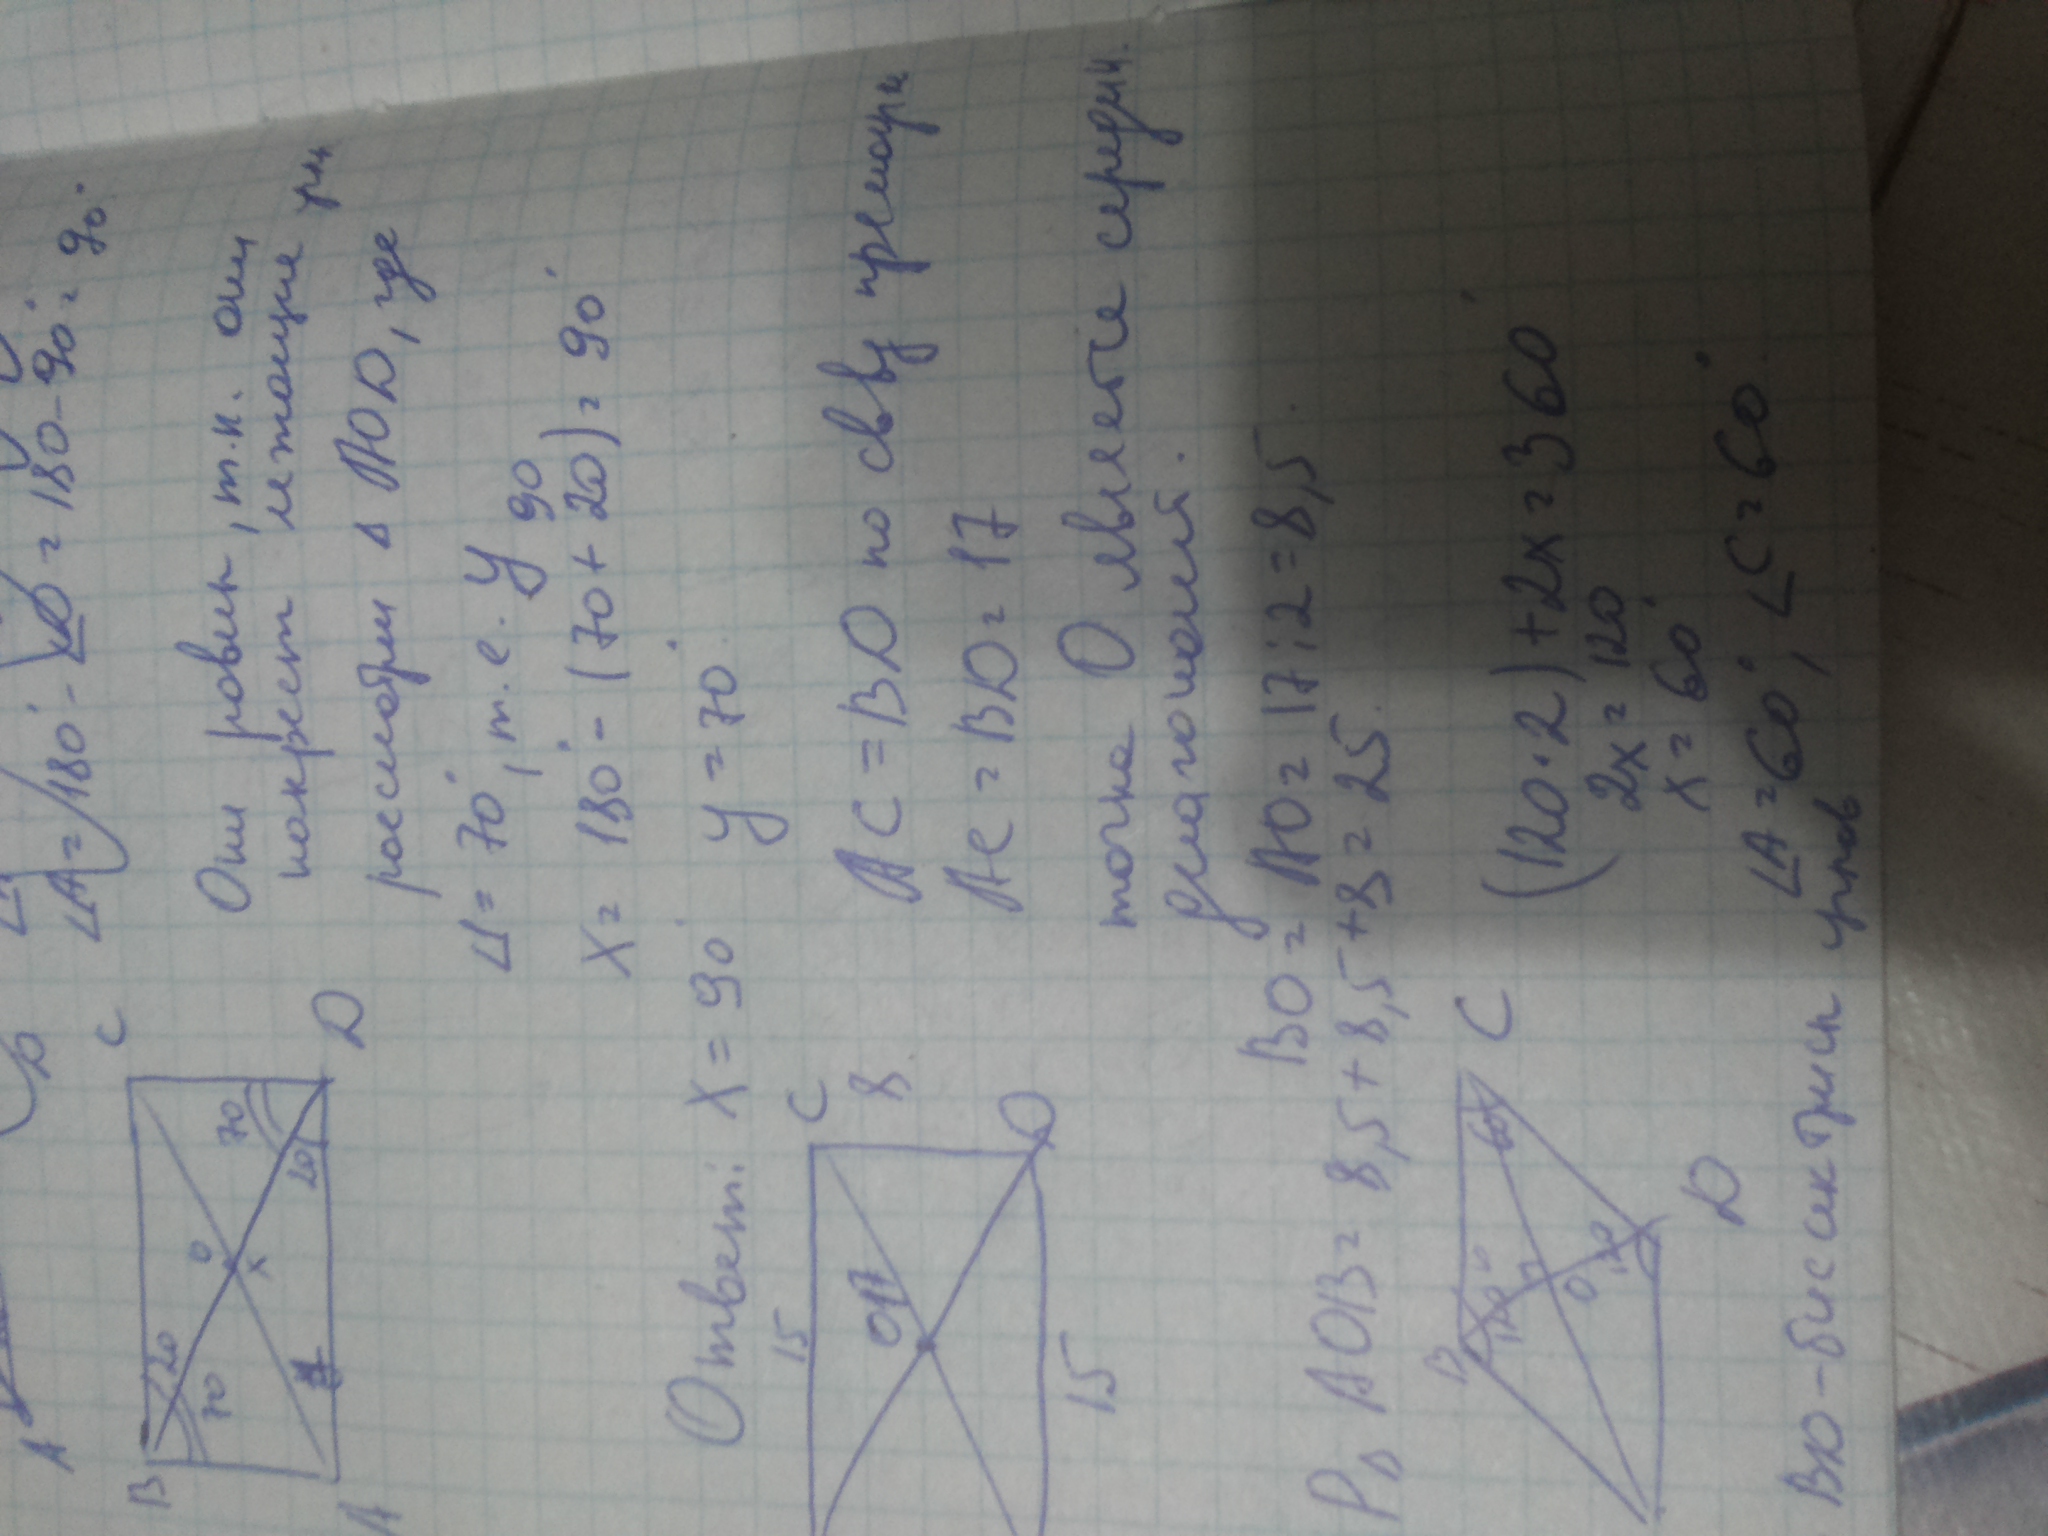 ∠A = 180° - ∠D = 180 - 90° = 90°
A
D
C
B
20
70
O
x
70
20
A
D
Они равны, т.к. они
накрест лежащие
рассмотрим Δ AOD, где
∠1 = 70°, т.е. y 90
x = 180° - (70 + 20) = 90°
Ответ: x = 90° y = 70°
15
C
8
O
17
D
15
AC = BD по св-ву
AC = BD = 17
точка O явлется середин.
диагоналей.
BO = AO = 17 : 2 = 8,5
P Δ AOB = 8,5 + 8,5 + 8 = 25.
B
C
120°
60
O
120
D
(120 · 2) + 2x = 360°
2x = 120
x = 60°
∠A = 60°; ∠C = 60°
BD - биссектриса
углов